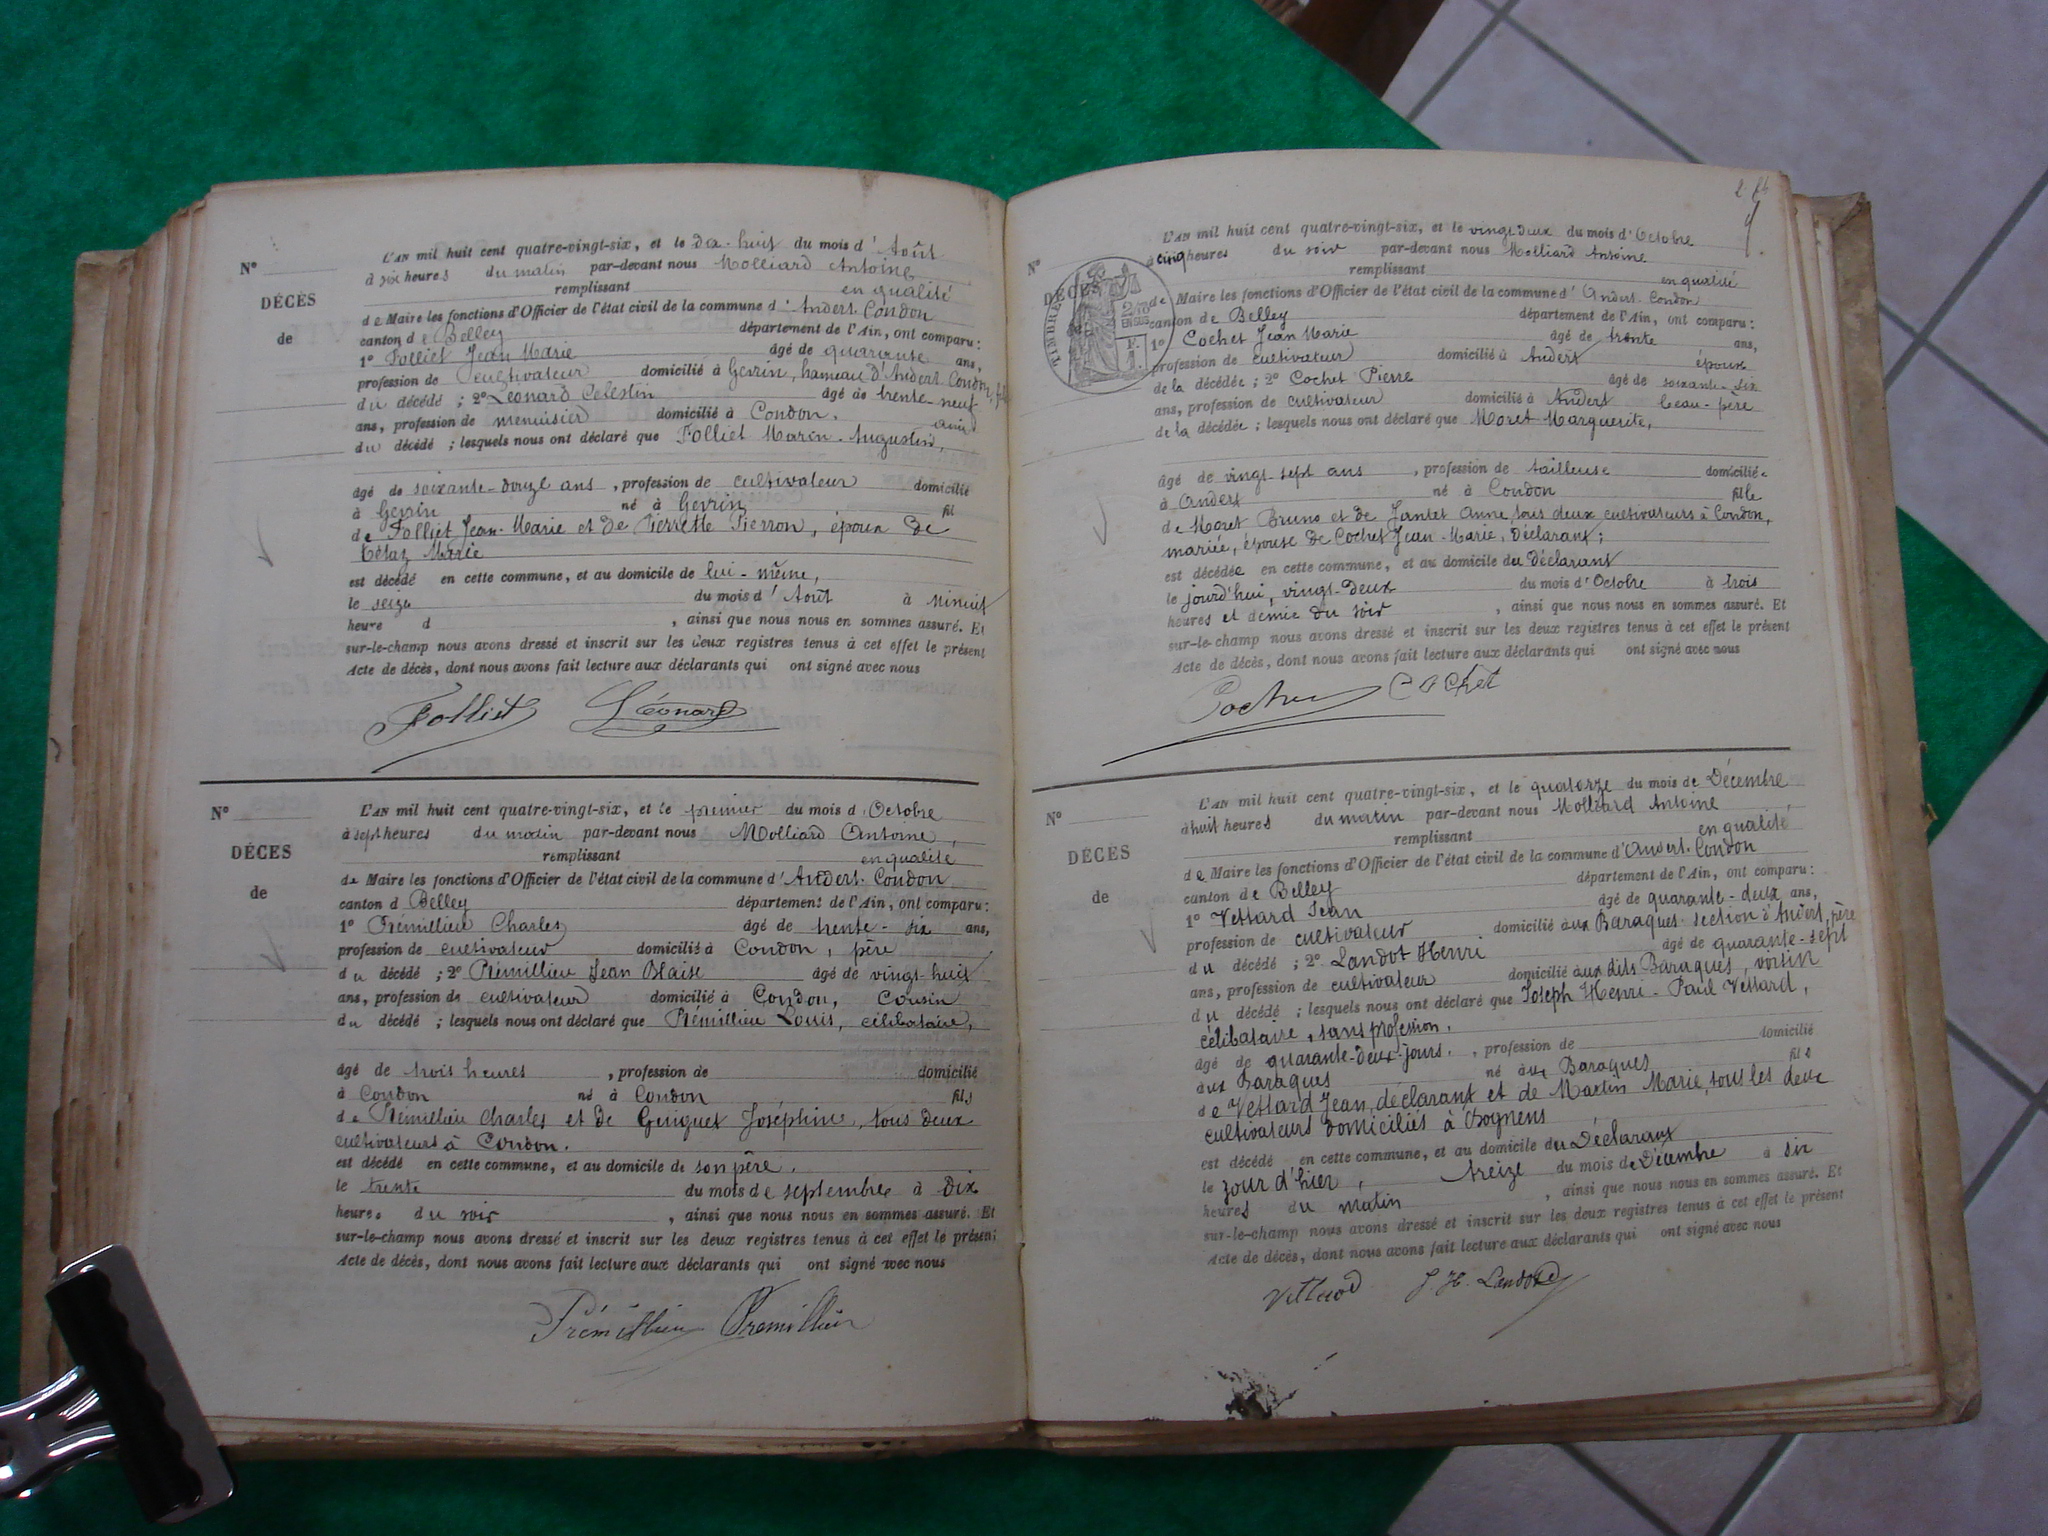 L'AN mil huit cent quatre-vingt-six, et le dix-huit du mois d'Août
N° à six heures du matin par-devant nous Molliard Antoine
remplissant en qualité
DÉCÈS
de Maire les fonctions d'Officier de l'état civil de la commune d'Andert-Condon
de
canton de Belley département de l'Ain, ont comparu :
1° Folliet Jean Marie âgé de quarante ans,
profession de cultivateur domicilié à Gevrin, hameau d'Andert-Condon, fils
du décédé ; 2° Léonard Célestin âgé de trente-neuf
ans, profession de menuisier domicilié à Condon, ami
du décédé ; lesquels nous ont déclaré que Folliet Marin-Augustin,
âgé de soixante-douze ans, profession de cultivateur domicilié
à Gevrin né à Gevrin fil
de Folliet Jean-Marie et de Pierrette Pierron, époux de
Tétaz Marie
est décédé en cette commune, et au domicile de lui-même,
le seize du mois d'Août à minuit
heure d , ainsi que nous nous en sommes assuré. Et
sur-le-champ nous avons dressé et inscrit sur les deux registres tenus à cet effet le présent
Acte de décès, dont nous avons fait lecture aux déclarants qui ont signé avec nous
Folliet Léonard
N° L'AN mil huit cent quatre-vingt-six, et le premier du mois d'Octobre
à sept heures du matin par-devant nous Molliard Antoine,
DÉCES remplissant en qualité
de Maire les fonctions d'Officier de l'état civil de la commune d'Andert-Condon
de
canton d Belley département de l'Ain, ont comparu :
1° Prémillieu Charles âgé de trente-six ans,
profession de cultivateur domicilié à Condon, père
du décédé ; 2° Prémillieu Jean Blaise âgé de vingt-huit
ans, profession de cultivateur domicilié à Condon, Cousin
du décédé ; lesquels nous ont déclaré que Prémillieu Louis, célibataire,
âgé de trois heures , profession de domicilié
à Condon né à Condon fils
de Prémillieu Charles et de Guiguet Joséphine, tous deux
cultivateurs à Condon.
est décédé en cette commune, et au domicile de son père,
le trente du mois de septembre à Dix
heures du soir , ainsi que nous nous en sommes assuré. Et
sur-le-champ nous avons dressé et inscrit sur les deux registres tenus à cet effet le présent
Acte de décès, dont nous avons fait lecture aux déclarants qui ont signé avec nous
Prémillieu Prémillieu
L'AN mil huit cent quatre-vingt-six, et le vingt-deux du mois d'Octobre
N° à cinq heures du soir par-devant nous Molliard Antoine
remplissant en qualité
DÉCÈS
TIMBRE
2/10 EN SUS
de Maire les fonctions d'Officier de l'état civil de la commune d'Andert-Condon
canton de Belley département de l'Ain, ont comparu :
1° Cochet Jean Marie âgé de trente ans,
profession de cultivateur domicilié à Andert époux
de la décédée ; 2° Cochet Pierre âgé de soixante-six
ans, profession de cultivateur domicilié à Andert beau-père
de la décédée ; lesquels nous ont déclaré que Moret Marguerite,
âgé de vingt-sept ans , profession de tailleuse domiciliée
à Andert né à Condon fille
de Moret Bruno et de Jantet Anne, tous deux cultivateurs à Condon,
mariée, épouse de Cochet Jean-Marie, déclarant ;
est décédée en cette commune, et au domicile du déclarant
le jourd'hui, vingt-deux du mois d'Octobre à trois
heures et demie du soir , ainsi que nous nous en sommes assuré. Et
sur-le-champ nous avons dressé et inscrit sur les deux registres tenus à cet effet le présent
Acte de décès, dont nous avons fait lecture aux déclarants qui ont signé avec nous
Cochet Cochet
N° L'AN mil huit cent quatre-vingt-six, et le quatorze du mois de Décembre
à huit heures du matin par-devant nous Molliard Antoine
DÉCÈS remplissant en qualité
de Maire les fonctions d'Officier de l'état civil de la commune d'Andert-Condon
de
canton de Belley département de l'Ain, ont comparu :
1° Vettard Jean âgé de quarante-deux ans,
profession de cultivateur domicilié aux Baraques-section d'Andert, père
du décédé ; 2° Landot Henri âgé de quarante-sept
ans, profession de cultivateur domicilié aux dits Baraques, voisin
du décédé ; lesquels nous ont déclaré que Joseph Henri-Paul Vettard,
célibataire, sans profession,
âgé de quarante-deux-jours, , profession de domicilié
aux Baraques né aux Baraques fils
de Vettard Jean, déclarant et de Martin Marie, tous les deux
cultivateurs domiciliés à Bognens
est décédé en cette commune, et au domicile du Déclarant
le jour d'hier, treize du mois de Décembre à six
heures du matin , ainsi que nous nous en sommes assuré. Et
sur-le-champ nous avons dressé et inscrit sur les deux registres tenus à cet effet le présent
Acte de décès, dont nous avons fait lecture aux déclarants qui ont signé avec nous
Vettard J. H. Landot